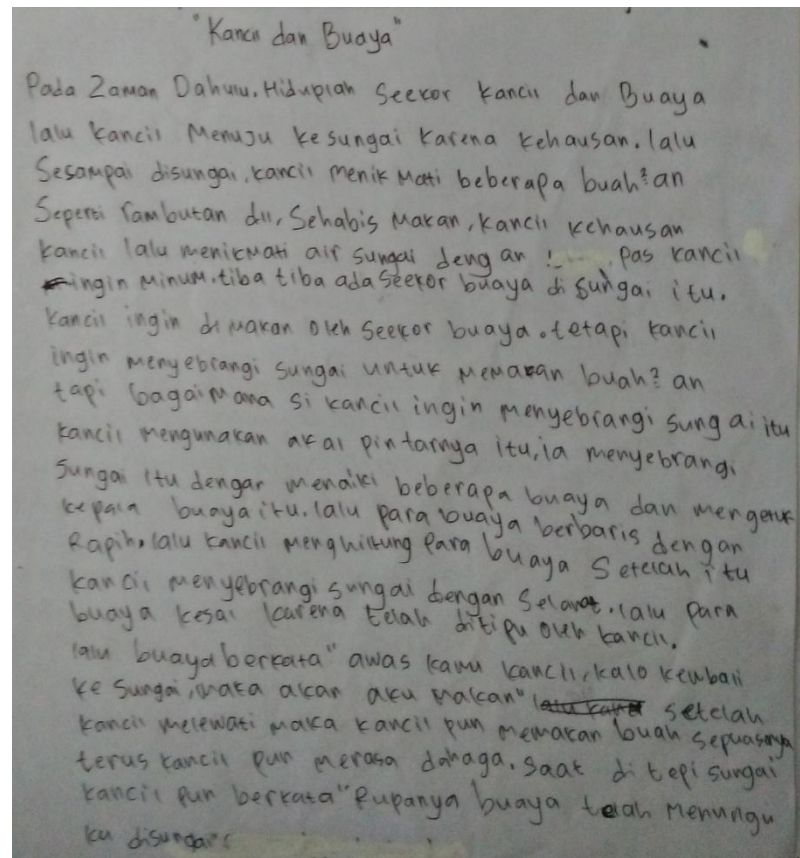 "Kancil dan Buaya"
Pada Zaman Dahulu. Hiduplah Seekor kancil dan Buaya
lalu kancil Menuju ke sungai karena kehausan. lalu
Sesampai disungai, kancil menikmati beberapa buah²an
Seperti rambutan dll, Sehabis Makan, kancil kehausan
kancil lalu menikmati air sungai dengan pas kancil
ingin Minum. tiba tiba ada Seekor buaya di sungai itu.
Kancil ingin di makan oleh Seekor buaya. tetapi kancil
ingin menyebrangi sungai untuk memakan buah² an
tapi bagaimana si kancil ingin menyebrangi sungai itu
kancil mengunakan akal pintarnya itu, ia menyebrangi
sungai itu dengan menaiki beberapa buaya dan mengetuk
kepala buaya itu. lalu para buaya berbaris dengan
Rapih, lalu kancil menghiltung Para buaya Setelah itu
kancil menyebrangi sungai dengan Selamat. lalu para
buaya kesal karena telah ditipu oleh kancil.
lalu buaya berkata" awas kamu kancil, kalo kembali
ke sungai, maka akan aku makan" setelah
kancil melewati maka kancil pun memakan buah sepuasnya
terus kancil pun merasa dahaga. saat di tepi sungai
kancil pun berkata "Rupanya buaya telah Menungu
ku disungai"